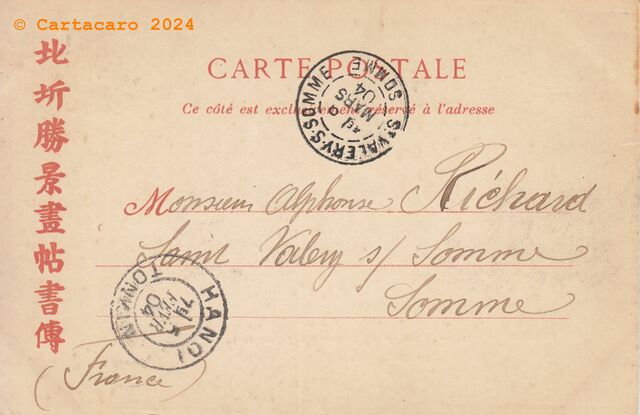 © Cartacaro 2024
CARTE POSTALE
Ce côté est exclusivement réservé à l'adresse
北圻勝景畫帖書傳
ST VALERY-S-SOMME SOMME
9
MARS
04
Monsieur Alphonse Richard
Saint Valery s/ Somme
Somme
(France)
HANOI TONKIN
FEVR
04